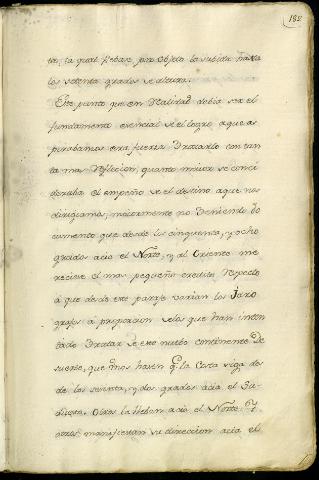 182
ta, la qual lebase por Objeto la subida hasta
los setenta grados de altura.
Este punto que en Realidad debia ser el
fundamento esencial de el logro a que as
pirabamos era fuerza tratarlo con tan
ta mas reflecion, quanto maior se consi
deraba el empeño de el destino a que nos
dirigiamos, maiormente no teniendo do
cumento que desde los cinquenta, y ocho
grados acia el Norte, y al Oriente me
recise el mas pequeño credito Respecto
á que desde este parage varian los
grafos á proporcion de los que han inten
tado tratar de este nuebo continente de
suerte, que unos hacen qe. la Costa siga des
de los sesenta, y dos grados acia el Su
dueste. Otros la lleban acia el Norte. Y
otros manifiestan su direccion acia el